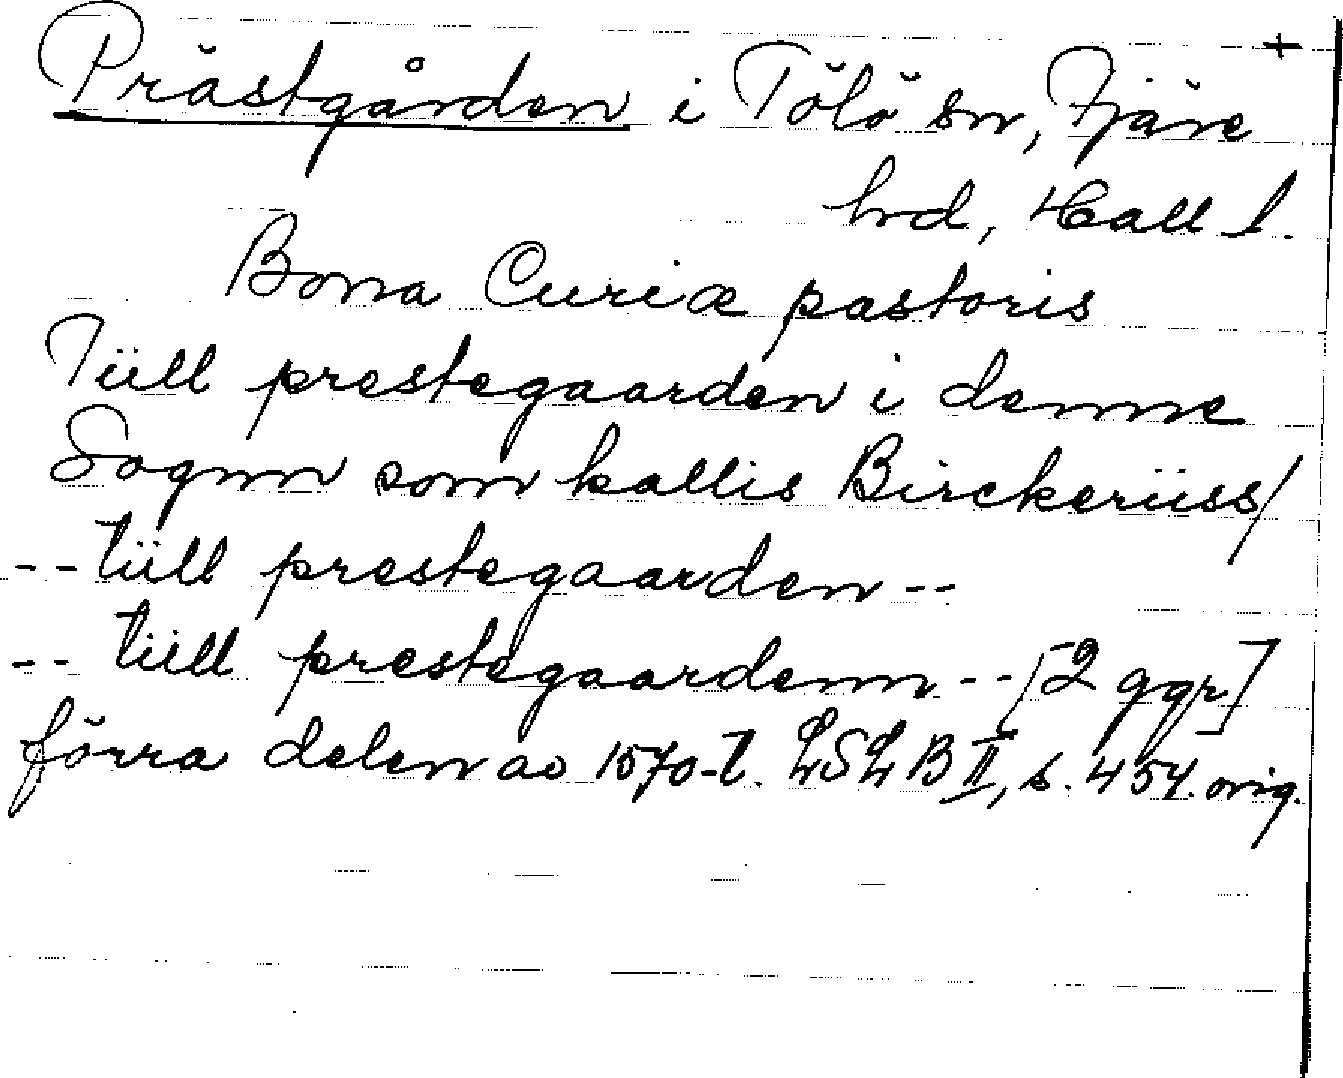 +
Prästgården i Tölö sn, Fjäre
hrd, Hall l.
Bona Curiæ pastoris
Tüll prestegaarden i denne
Sognn som kallis Birckerüss/
-- tüll prestegaarden --
-- tüll prestegaardenn -- [2 ggr]
förra delen av 1570-t. LSLB II, s. 454. orig.